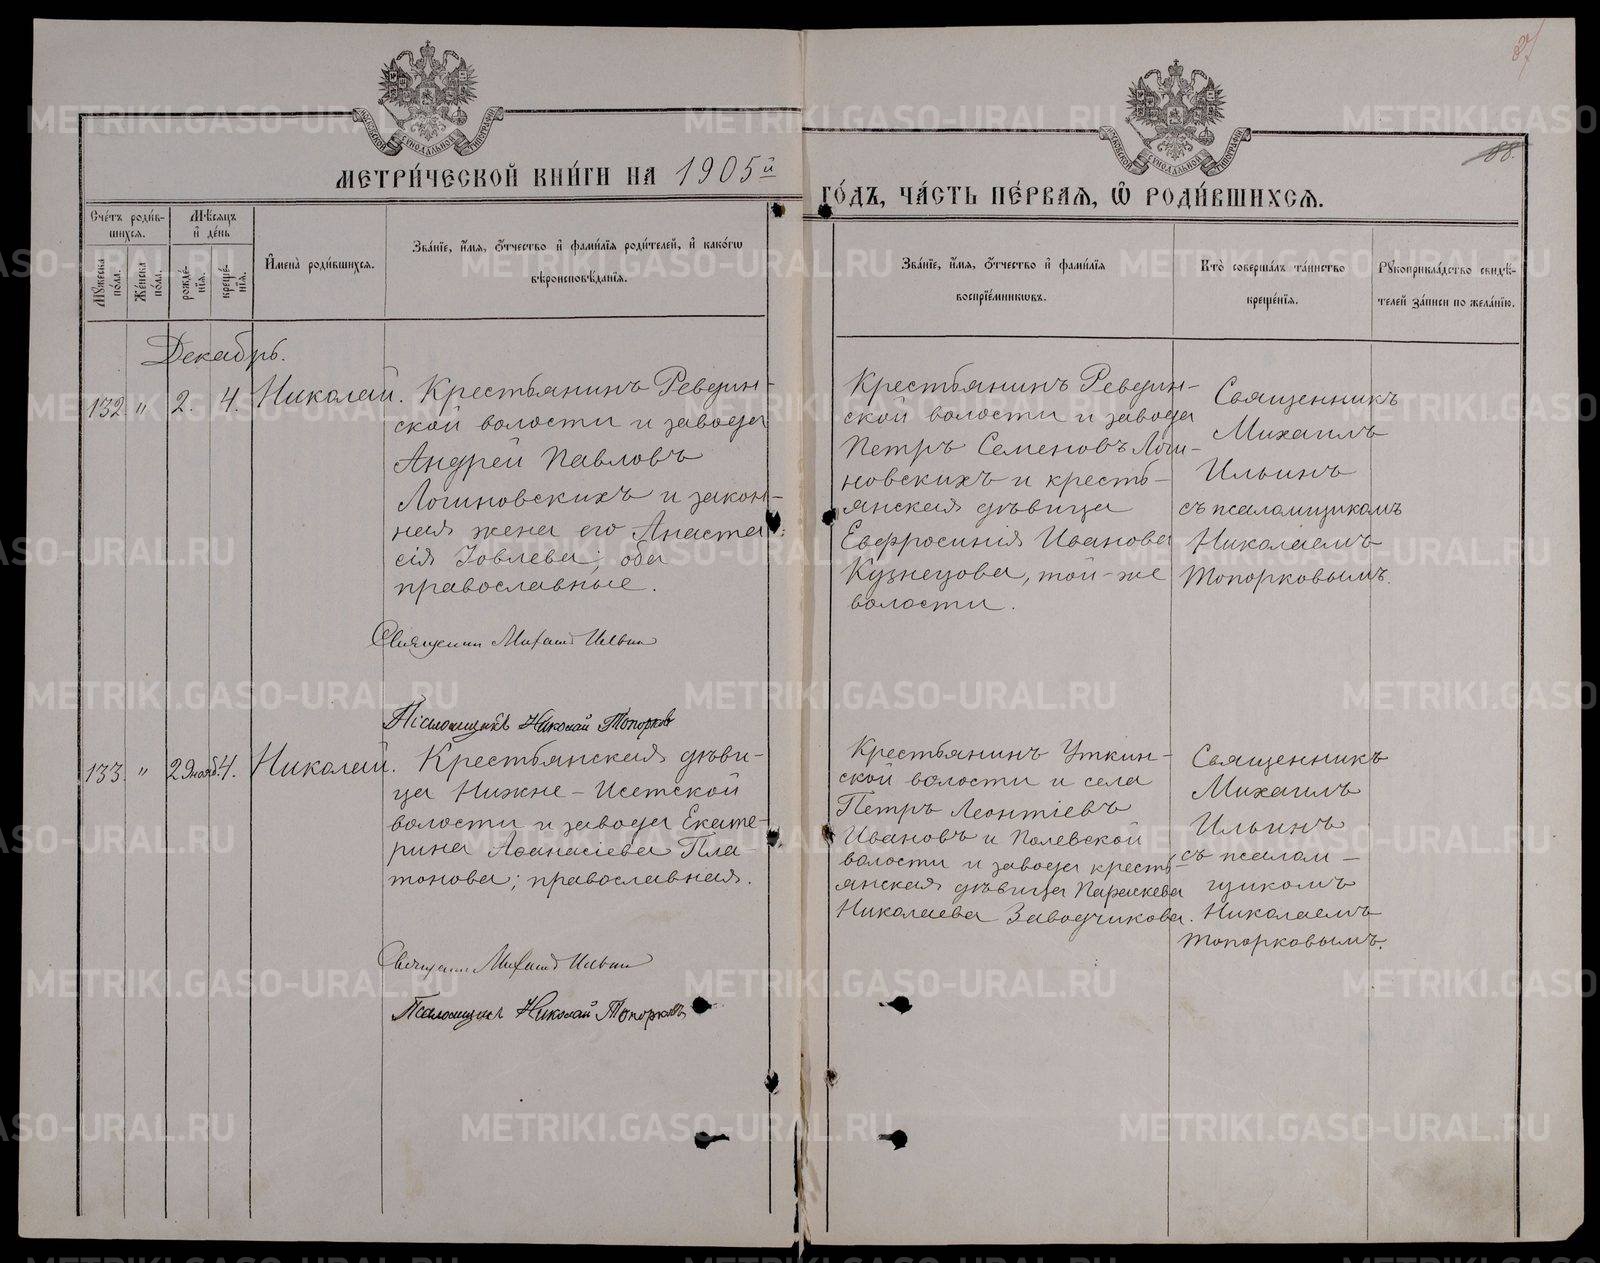 87
88.
МЕТРИ́ЧЕСКОЙ КНИ́ГИ НА 1905й
ГО́ДЪ, ЧА́СТЬ ПЕ́РВАЯ, Ѡ҆ РОДИ́ВШИХСЯ.
Сче́тъ роди́в-
шихся.
Мѣ́сяцъ
и҆ де́нь
Му́жеска
по́ла.
Же́нска
по́ла.
рожде́-
нїя.
креще́-
нїя.
И҆мена̀ роди́вшихся.
Зва́нїе, и҆́мя, ѻ҆́тчество и҆ фами́лїя роди́телей, и҆ како́гѡ
вѣроисповѣ́данїя.
Зва́нїе, и҆́мя, ѻ҆́тчество и҆ фами́лїя
воспрїе́мникѡвъ.
Кто̀ соверша́лъ та́инство
креще́нїя.
Рꙋкоприкла́дство свидѣ́-
телей за́писи по жела́нїю.
Декабрь.
132 " 2. 4. Николай.
Крестьянинъ Ревдин-
ской волости и завода
Андрей Павловъ
Логиновскихъ и закон-
ная жена его Анаста-
сія Іовлева; оба
православные.
Священник Михаил Ильин
Псаломщикъ Николай Топорков
Крестьянинъ Ревдин-
ской волости и завода
Петръ Семеновъ Логи-
новскихъ и кресть-
янская дѣвица
Евфросинія Иванова
Кузнецова, той-же
волости.
Священникъ
Михаилъ
Ильинъ
съ псаломщикомъ
Николаемъ
Топорковымъ.
133. " 29 нояб. 4. Николай.
Крестьянская дѣви-
ца Нижне-Исетской
волости и завода Екате-
рина Аѳанасіева Пла-
тонова; православная.
Священник Михаил Ильин
Псаломщикъ Николай Топорковъ
Крестьянинъ Уткин-
ской волости и села
Петръ Леонтіевъ
Ивановъ и Полевской
волости и завода кресть-
янская дѣвица Параскева
Николаева Заводчикова.
Священникъ
Михаилъ
Ильинъ
съ псалом-
щикомъ
Николаемъ
Топорковымъ.
METRIKI.GASO-URAL.RU